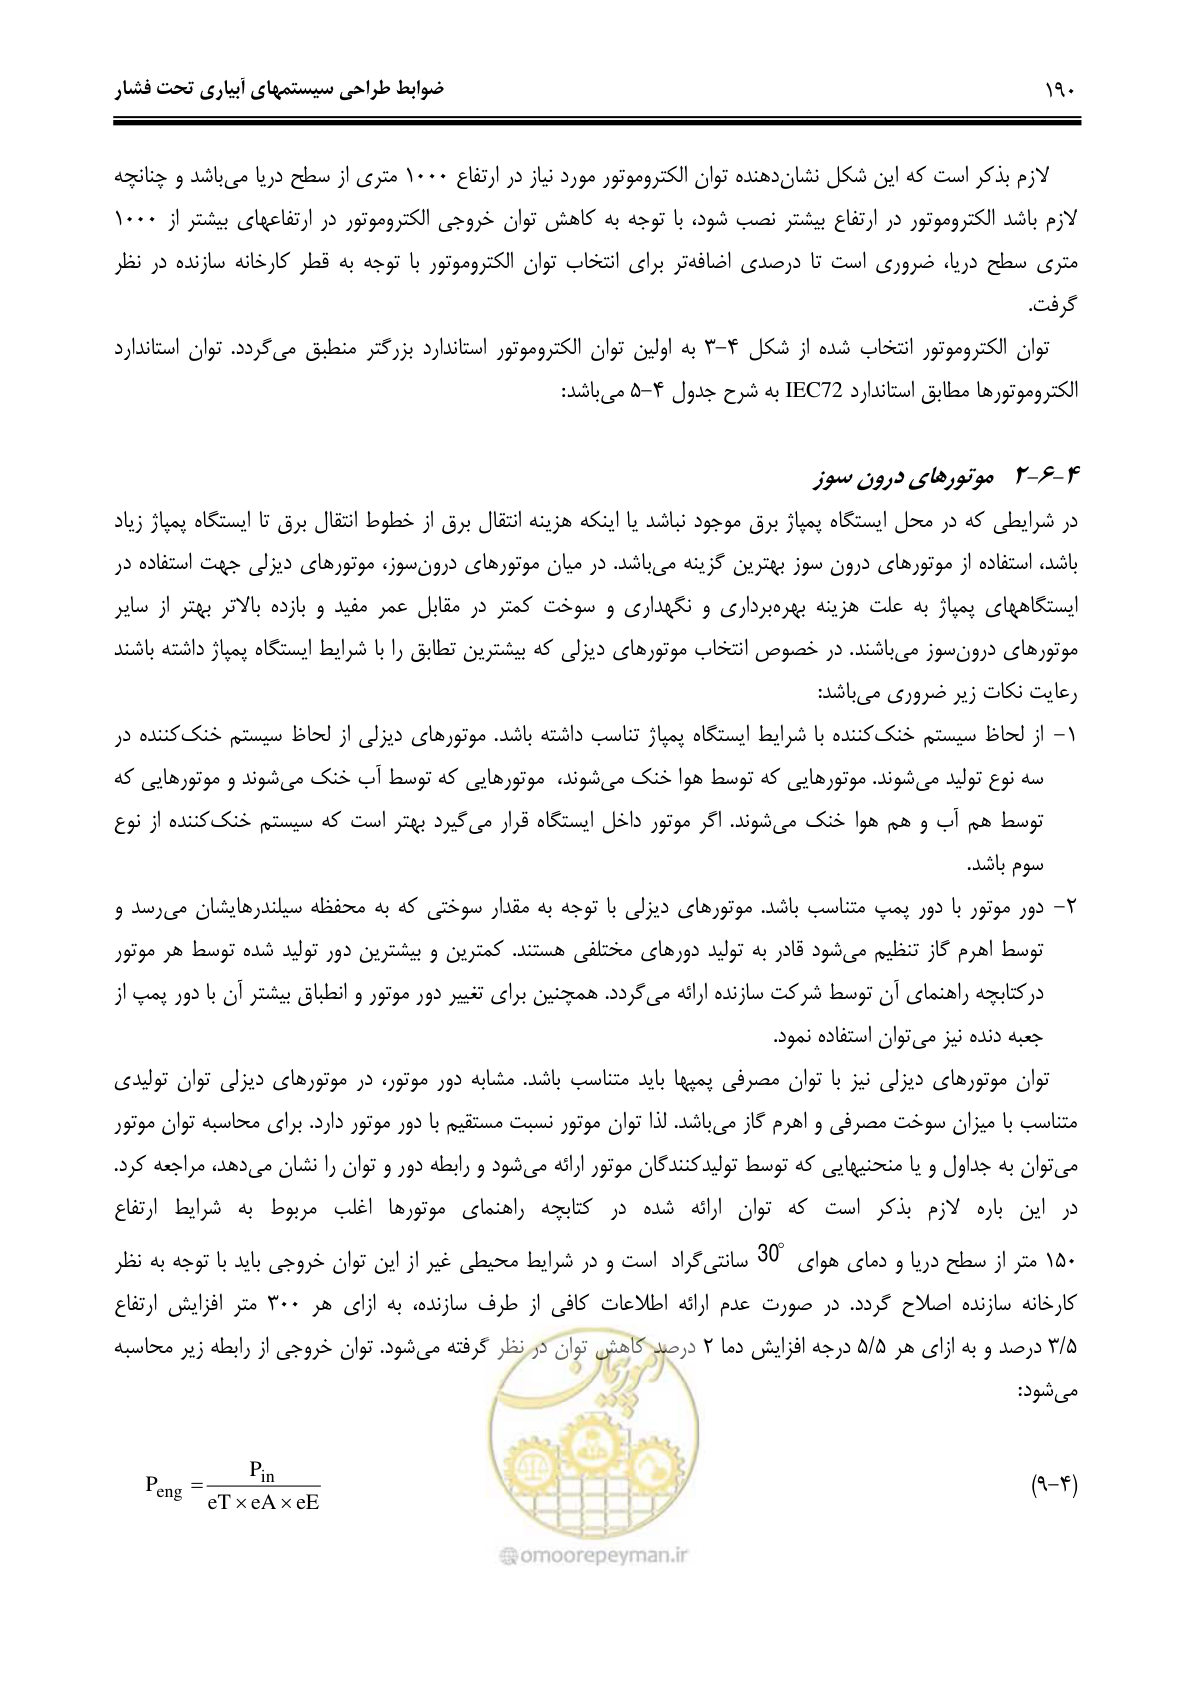 ۱۹۰ ضوابط طراحی سیستمهای آبیاری تحت فشار
لازم بذکر است که این شکل نشان‌دهنده توان الکتروموتور مورد نیاز در ارتفاع ۱۰۰۰ متری از سطح دریا می‌باشد و چنانچه
لازم باشد الکتروموتور در ارتفاع بیشتر نصب شود، با توجه به کاهش توان خروجی الکتروموتور در ارتفاعهای بیشتر از ۱۰۰۰
متری سطح دریا، ضروری است تا درصدی اضافه‌تر برای انتخاب توان الکتروموتور با توجه به قطر کارخانه سازنده در نظر
گرفت.
توان الکتروموتور انتخاب شده از شکل ۴-۳ به اولین توان الکتروموتور استاندارد بزرگتر منطبق می‌گردد. توان استاندارد
الکتروموتورها مطابق استاندارد IEC72 به شرح جدول ۴-۵ می‌باشد:
۴-۶-۲ موتورهای درون سوز
در شرایطی که در محل ایستگاه پمپاژ برق موجود نباشد یا اینکه هزینه انتقال برق از خطوط انتقال برق تا ایستگاه پمپاژ زیاد
باشد، استفاده از موتورهای درون سوز بهترین گزینه می‌باشد. در میان موتورهای درون‌سوز، موتورهای دیزلی جهت استفاده در
ایستگاههای پمپاژ به علت هزینه بهره‌برداری و نگهداری و سوخت کمتر در مقابل عمر مفید و بازده بالاتر بهتر از سایر
موتورهای درون‌سوز می‌باشند. در خصوص انتخاب موتورهای دیزلی که بیشترین تطابق را با شرایط ایستگاه پمپاژ داشته باشند
رعایت نکات زیر ضروری می‌باشد:
۱- از لحاظ سیستم خنک‌کننده با شرایط ایستگاه پمپاژ تناسب داشته باشد. موتورهای دیزلی از لحاظ سیستم خنک‌کننده در
سه نوع تولید می‌شوند. موتورهایی که توسط هوا خنک می‌شوند، موتورهایی که توسط آب خنک می‌شوند و موتورهایی که
توسط هم آب و هم هوا خنک می‌شوند. اگر موتور داخل ایستگاه قرار می‌گیرد بهتر است که سیستم خنک‌کننده از نوع
سوم باشد.
۲- دور موتور با دور پمپ متناسب باشد. موتورهای دیزلی با توجه به مقدار سوختی که به محفظه سیلندرهایشان می‌رسد و
توسط اهرم گاز تنظیم می‌شود قادر به تولید دورهای مختلفی هستند. کمترین و بیشترین دور تولید شده توسط هر موتور
درکتابچه راهنمای آن توسط شرکت سازنده ارائه می‌گردد. همچنین برای تغییر دور موتور و انطباق بیشتر آن با دور پمپ از
جعبه دنده نیز می‌توان استفاده نمود.
توان موتورهای دیزلی نیز با توان مصرفی پمپها باید متناسب باشد. مشابه دور موتور، در موتورهای دیزلی توان تولیدی
متناسب با میزان سوخت مصرفی و اهرم گاز می‌باشد. لذا توان موتور نسبت مستقیم با دور موتور دارد. برای محاسبه توان موتور
می‌توان به جداول و یا منحنیهایی که توسط تولیدکنندگان موتور ارائه می‌شود و رابطه دور و توان را نشان می‌دهد، مراجعه کرد.
در این باره لازم بذکر است که توان ارائه شده در کتابچه راهنمای موتورها اغلب مربوط به شرایط ارتفاع
۱۵۰ متر از سطح دریا و دمای هوای 30° سانتی‌گراد است و در شرایط محیطی غیر از این توان خروجی باید با توجه به نظر
کارخانه سازنده اصلاح گردد. در صورت عدم ارائه اطلاعات کافی از طرف سازنده، به ازای هر ۳۰۰ متر افزایش ارتفاع
۳/۵ درصد و به ازای هر ۵/۵ درجه افزایش دما ۲ درصد کاهش توان در نظر گرفته می‌شود. توان خروجی از رابطه زیر محاسبه
می‌شود:
(۴-۹) P_eng = P_in / (eT × eA × eE)
امور پیمان
@omoorepeyman.ir